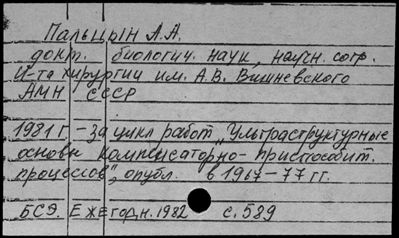 Пальцын А.А.
докт. биологич. наук, научн. сотр.
И-та хирургии им. А.В. Вишневского
АМН СССР
1981 г. - За цикл работ „Ультраструктурные
основы компенсаторно-приспособит.
процессов", опубл. в 1967-77 гг.
БСЭ. Ежегодн. 1982 с. 589